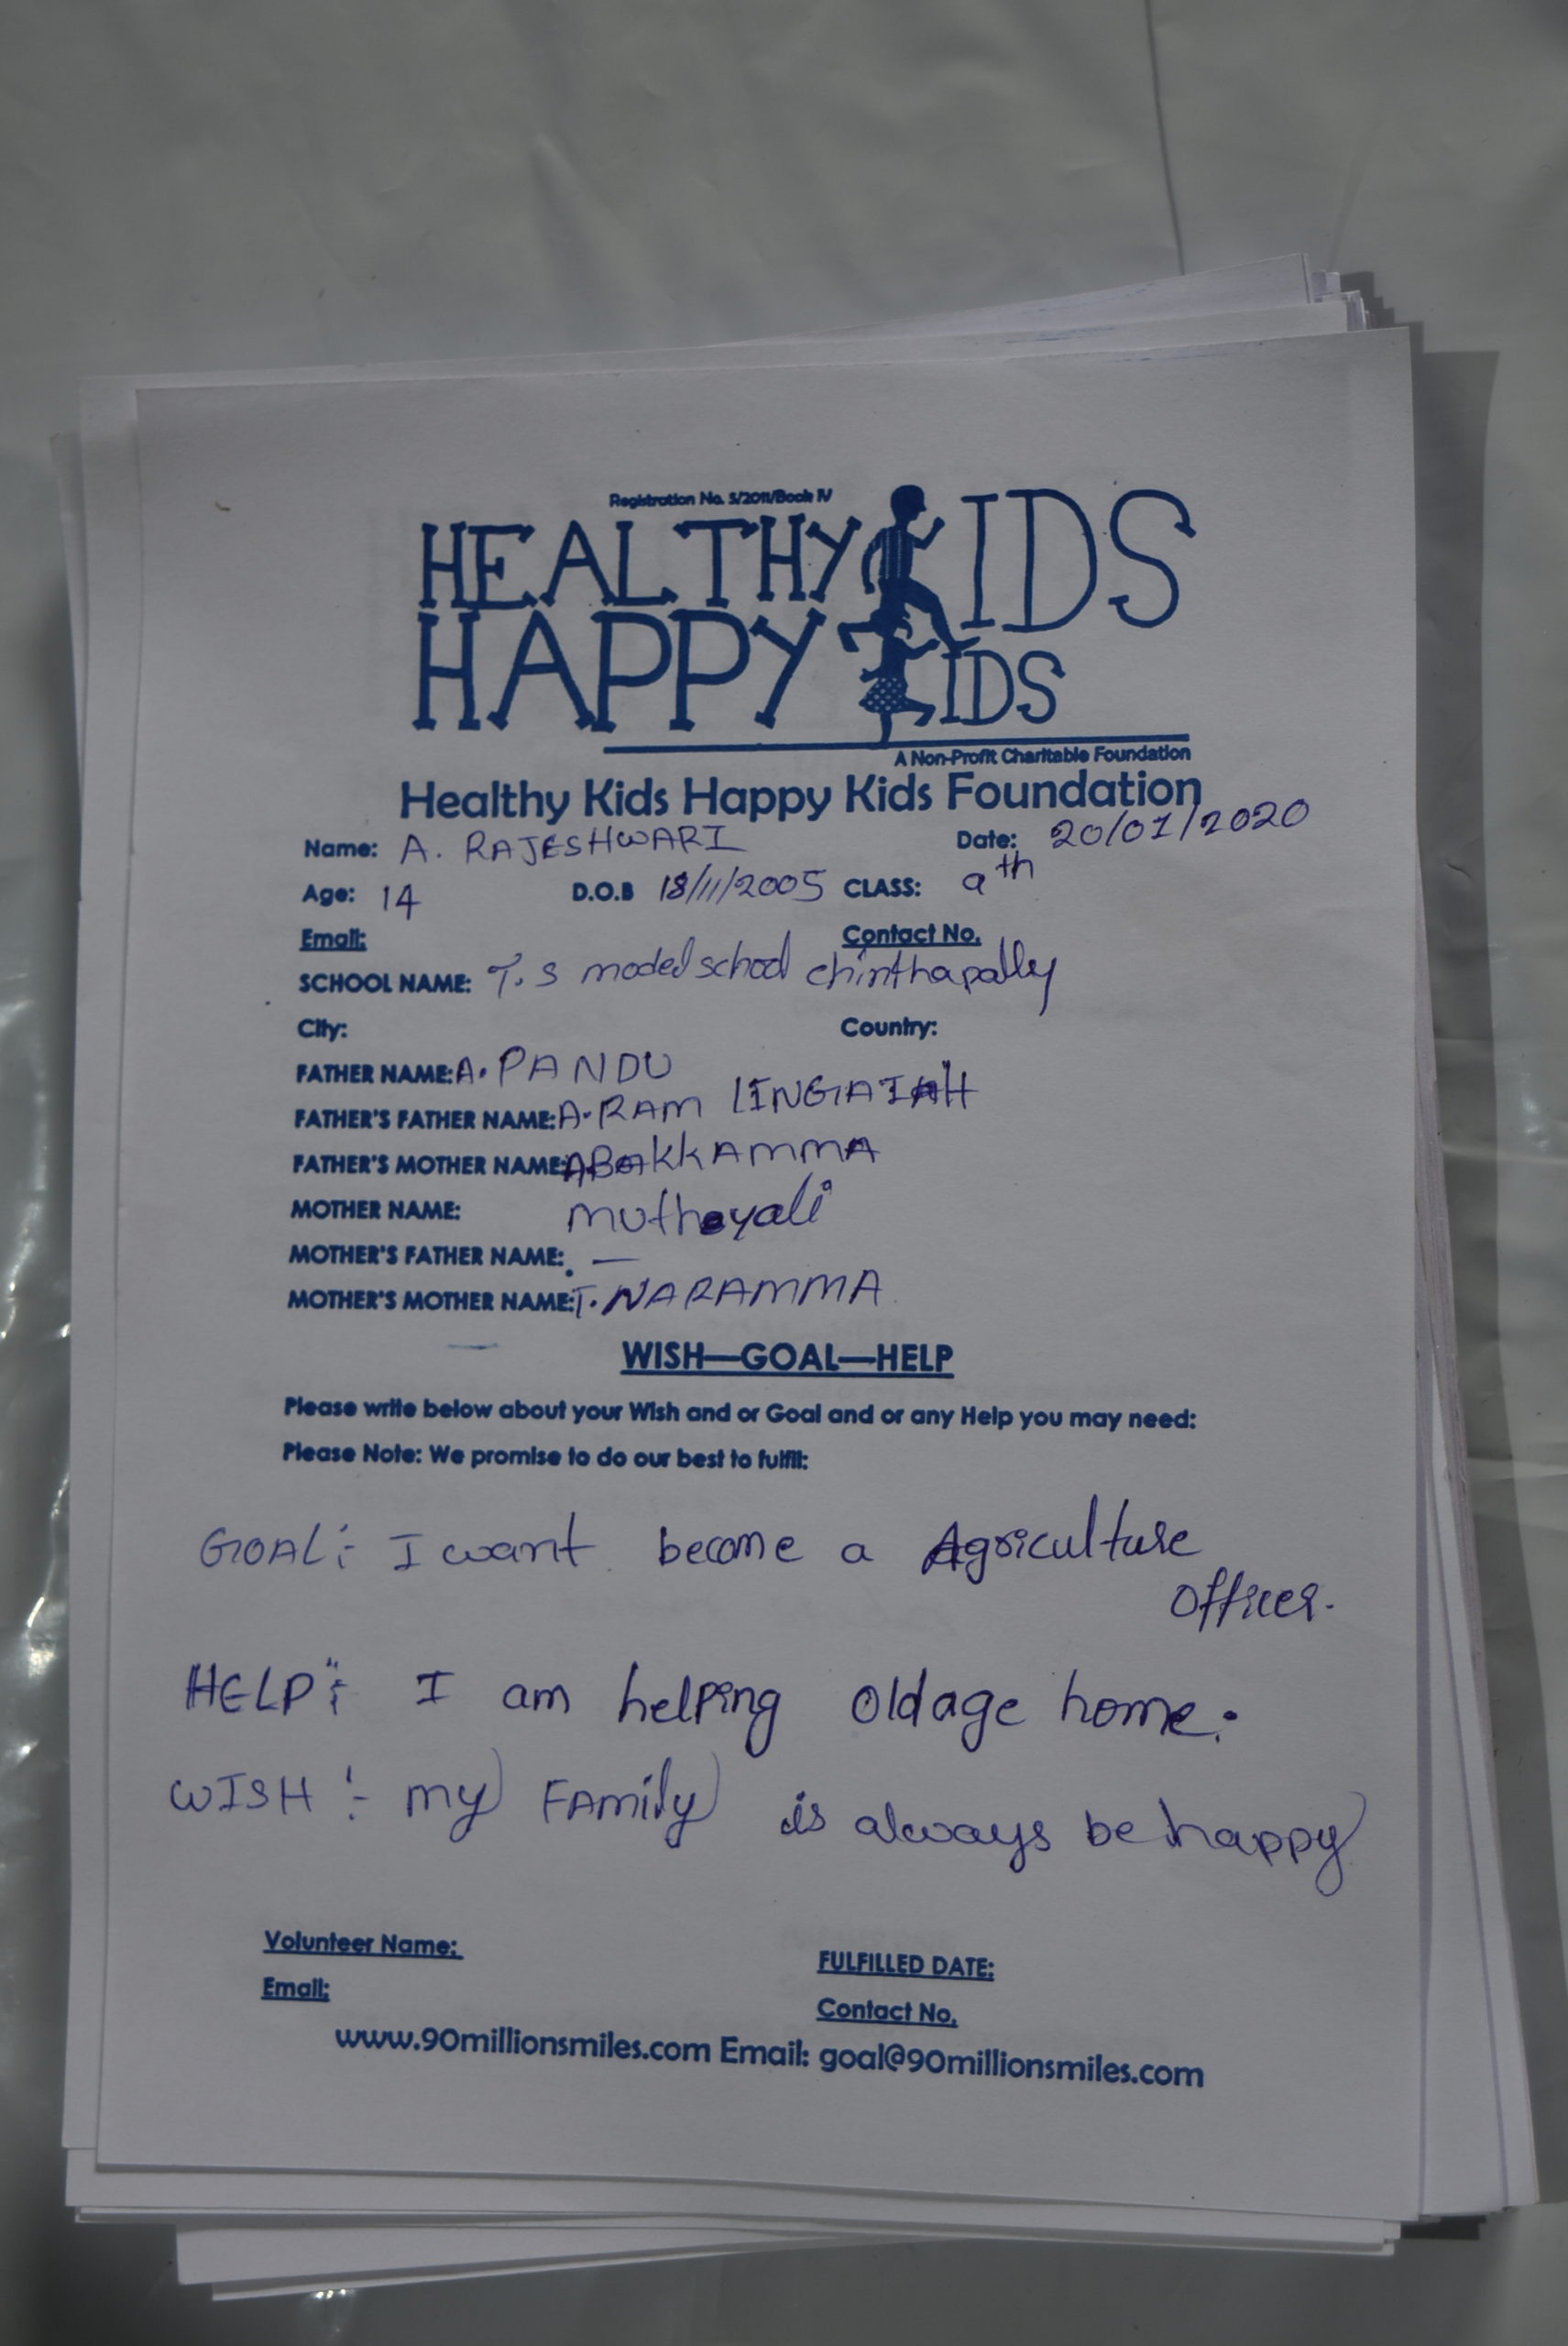 Registration No. 5/2011/Book IV
HEALTHY KIDS
HAPPY KIDS
A Non-Profit Charitable Foundation
Healthy Kids Happy Kids Foundation
Name: A. RAJESHWARI Date: 20/01/2020
Age: 14 D.O.B 18/11/2005 CLASS: 9th
Email: Contact No.
SCHOOL NAME: T.S model school chinthapally
City: Country:
FATHER NAME: A. PANDU
FATHER'S FATHER NAME: A. RAM LINGAIAH
FATHER'S MOTHER NAME: A BAKKAMMA
MOTHER NAME: muthayali
MOTHER'S FATHER NAME: —
MOTHER'S MOTHER NAME: T. NARAMMA
WISH—GOAL—HELP
Please write below about your Wish and or Goal and or any Help you may need:
Please Note: We promise to do our best to fulfil:
GOAL:- I want become a Agriculture
Officer.
HELP:- I am helping Oldage home.
WISH:- my FAmily is always be happy
Volunteer Name: FULFILLED DATE:
Email: Contact No.
www.90millionsmiles.com Email: goal@90millionsmiles.com